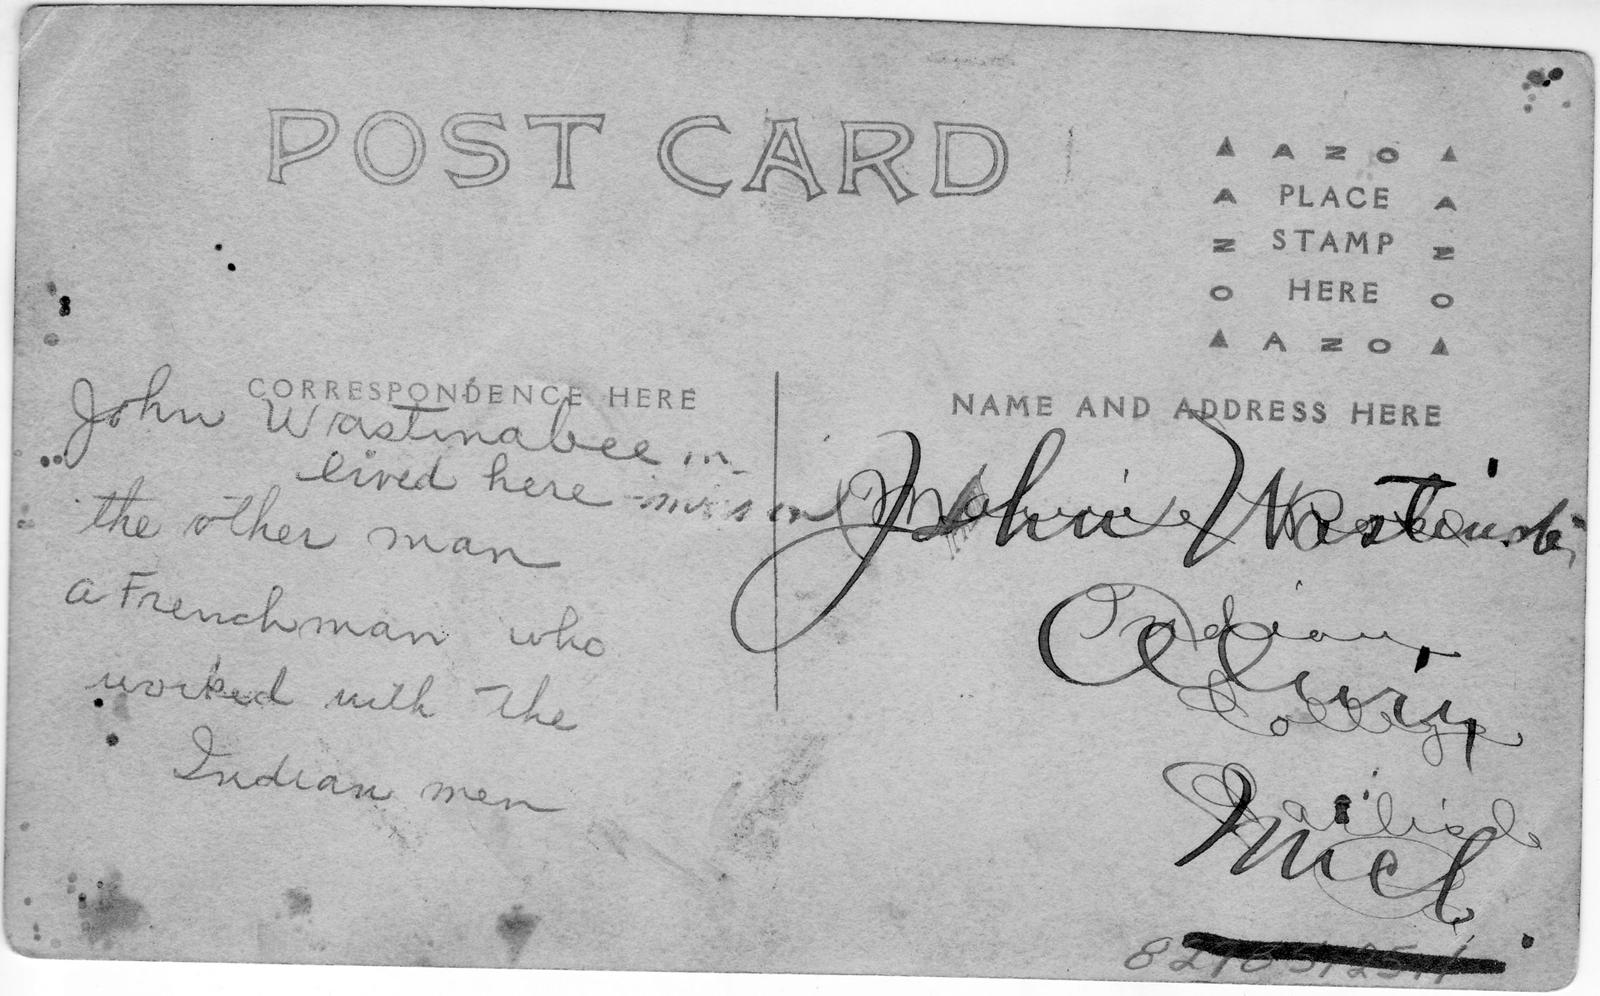 POST CARD
▲ A Z O ▲
A PLACE A
Z STAMP Z
O HERE O
▲ A Z O ▲
CORRESPONDENCE HERE
NAME AND ADDRESS HERE
John Wastinabee in
lived here
the other man
a Frenchman who
worked with the
Indian men
John
Indian
College
Mich